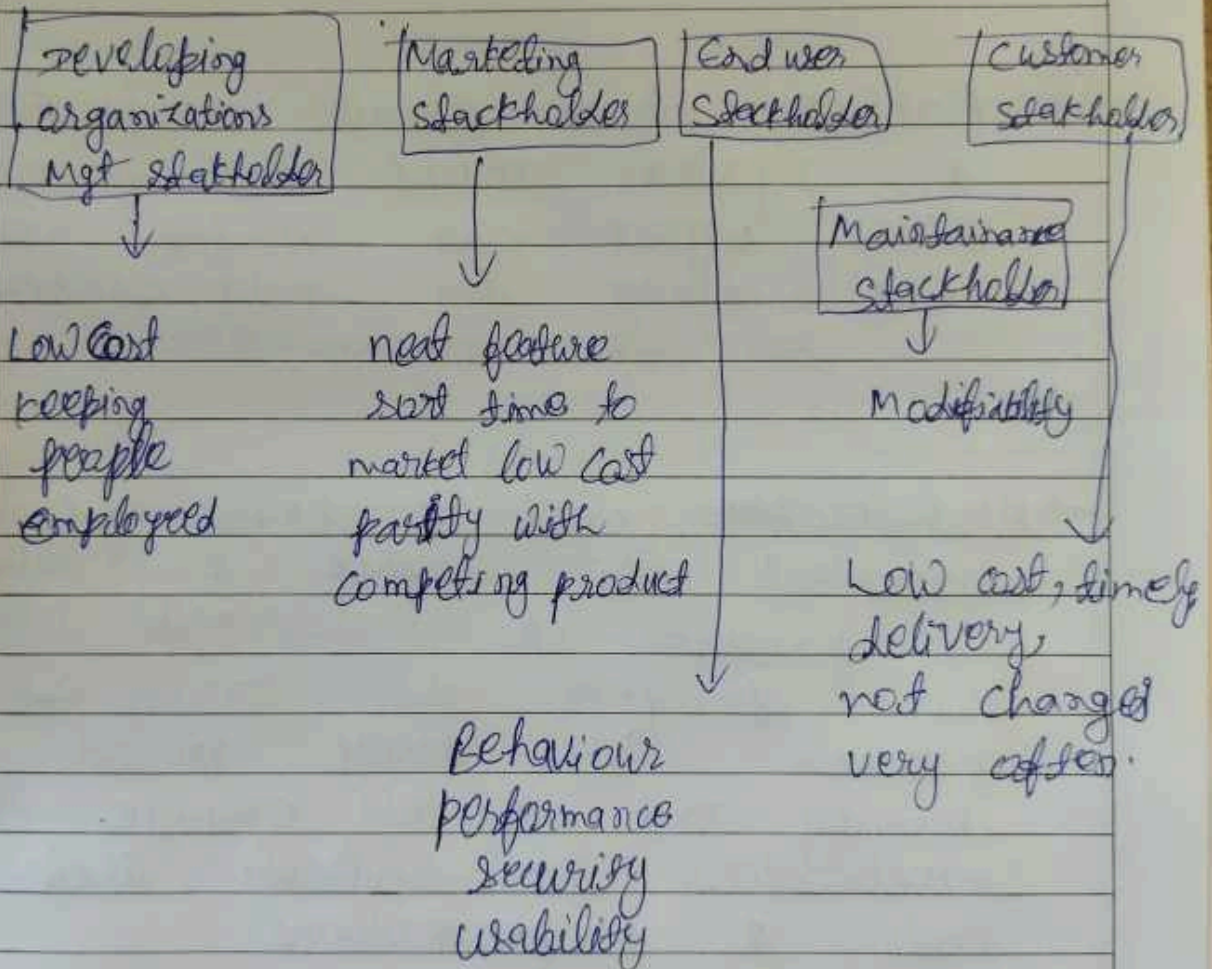 Developing
organizations
Mgt stakholder
Marketing
stackholder
End user
Stackholder
Customer
stakholder
Maintainance
stackholder
Low Cost
keeping
people
employeed
neat feature
sort time to
market low cost
parity with
competing product
Modifiability
Low cost, timely
delivery,
not changed
very often.
Behaviour
performance
security
usability